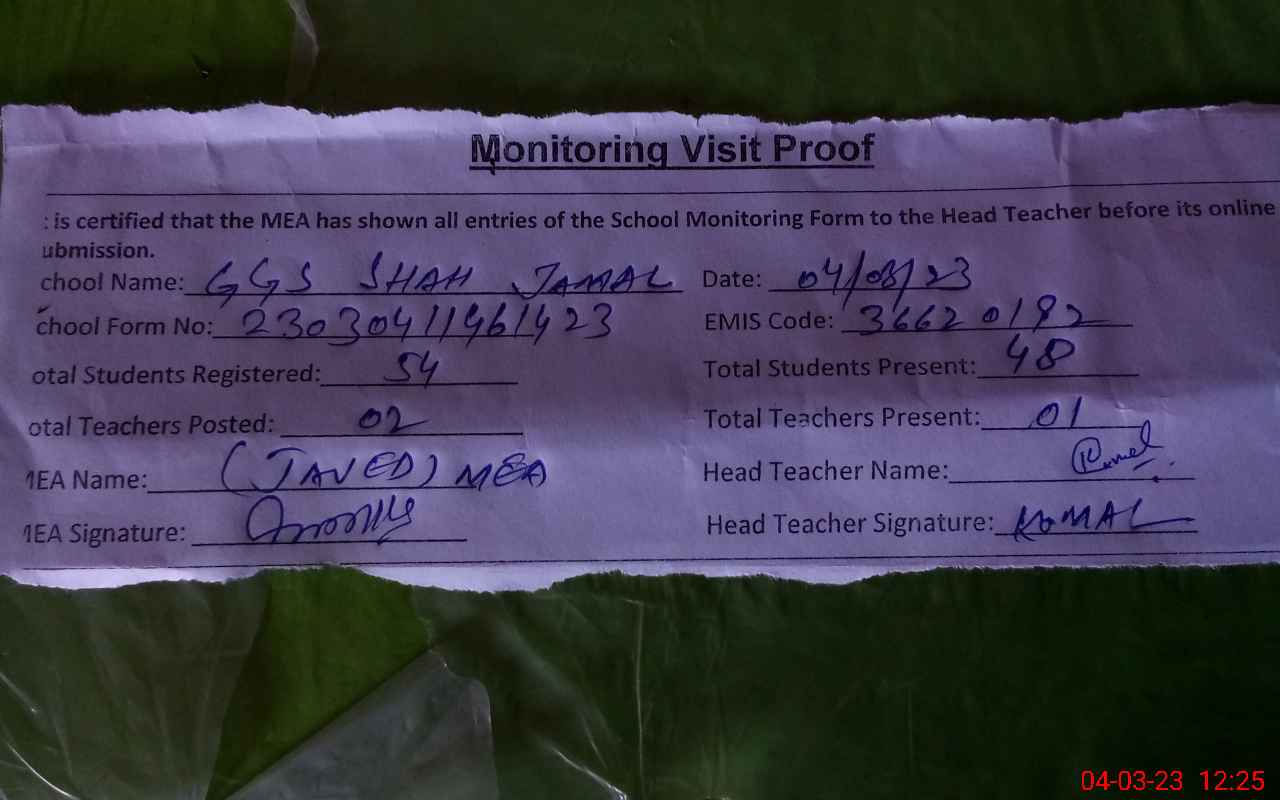 Monitoring Visit Proof
: is certified that the MEA has shown all entries of the School Monitoring Form to the Head Teacher before its online
ubmission.
chool Name: GGS SHAH JAMAL Date: 04/03/23
chool Form No: 23030411461423 EMIS Code: 36620192
otal Students Registered: 54 Total Students Present: 48
otal Teachers Posted: 02 Total Teachers Present: 01
MEA Name: (JAVED) MEA Head Teacher Name: Komal
MEA Signature: Head Teacher Signature: KOMAL
04-03-23 12:25